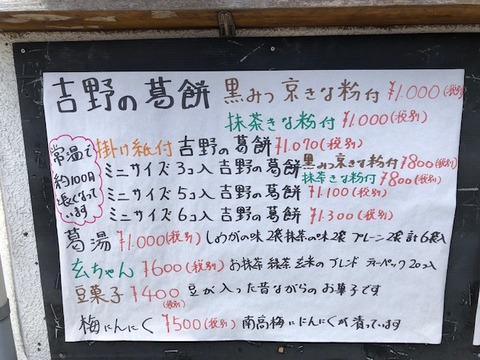 吉野の葛餅 黒みつ京きな粉付 ¥1.000(税別)
抹茶きな粉付 ¥1.000(税別)
常温で
約100日
長くなって
います
掛け紙付 吉野の葛餅 ¥1.070(税別)
ミニサイズ 3コ入 吉野の葛餅 黒みつ京きな粉付 ¥800(税別)
抹茶きな粉付 ¥800(税別)
ミニサイズ 5コ入 吉野の葛餅 ¥1.100(税別)
ミニサイズ 6コ入 吉野の葛餅 ¥1.300(税別)
葛湯 ¥1.000(税別) しょうがの味2袋 抹茶の味2袋 プレーン2袋 計6袋入
玄ちゃん ¥600(税別) お抹茶 緑茶 玄米のブレンド ティーパック20コ入
豆菓子 ¥400(税別) 豆が入った昔ながらのお菓子です
梅にんにく ¥500(税別) 南高梅ににんにくが漬っています